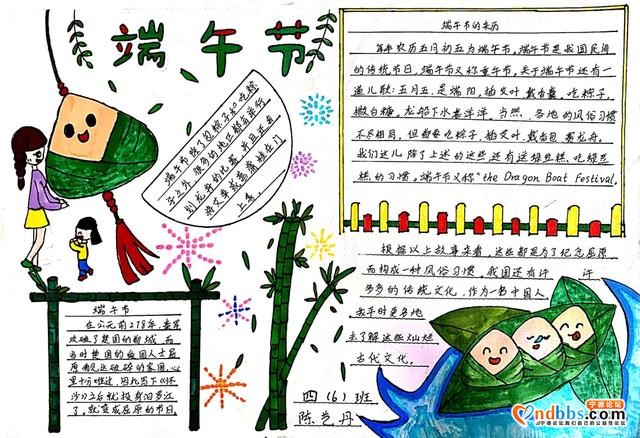 端午节
端午节除了包粽子和吃粽
子之外,很多的地区都会举行
划龙舟的比赛,并且还会
将艾草或菖蒲挂在门
上.
端午节的来历
每年农历五月初五为端午节,端午节是我国民间
的传统节日,端午节又称重午节,关于端午节还有一
道儿歌:五月五,是端阳,插艾叶,戴香囊,吃粽子,
撒白糖,龙船下水喜洋洋.当然,各地的风俗习惯
不尽相同,但都要吃粽子,插艾叶,戴香包,赛龙舟。
我们这儿除了上述的这些,还有送绿豆糕,吃绿豆
糕的习惯。端午节又称"the Dragon Boat Festival.
根据以上故事来看,这些都是为了纪念屈原
而构成一种风俗习惯,我国还有许 许
多多的传统文化,作为一名中国人
我平时更多地
去了解这些灿烂
古代文化。
端午节
在公元前278年,秦军
攻破了楚国的郢城,而
当时楚国的爱国人士屈
原看见这破碎的家国,心
里十分难过,因此写下《怀
沙》之后就投身汨罗江
了,就变成屈原的节日。
四(6)班
陈艺丹
宁德论坛
Ondbbs.com
宁德论坛